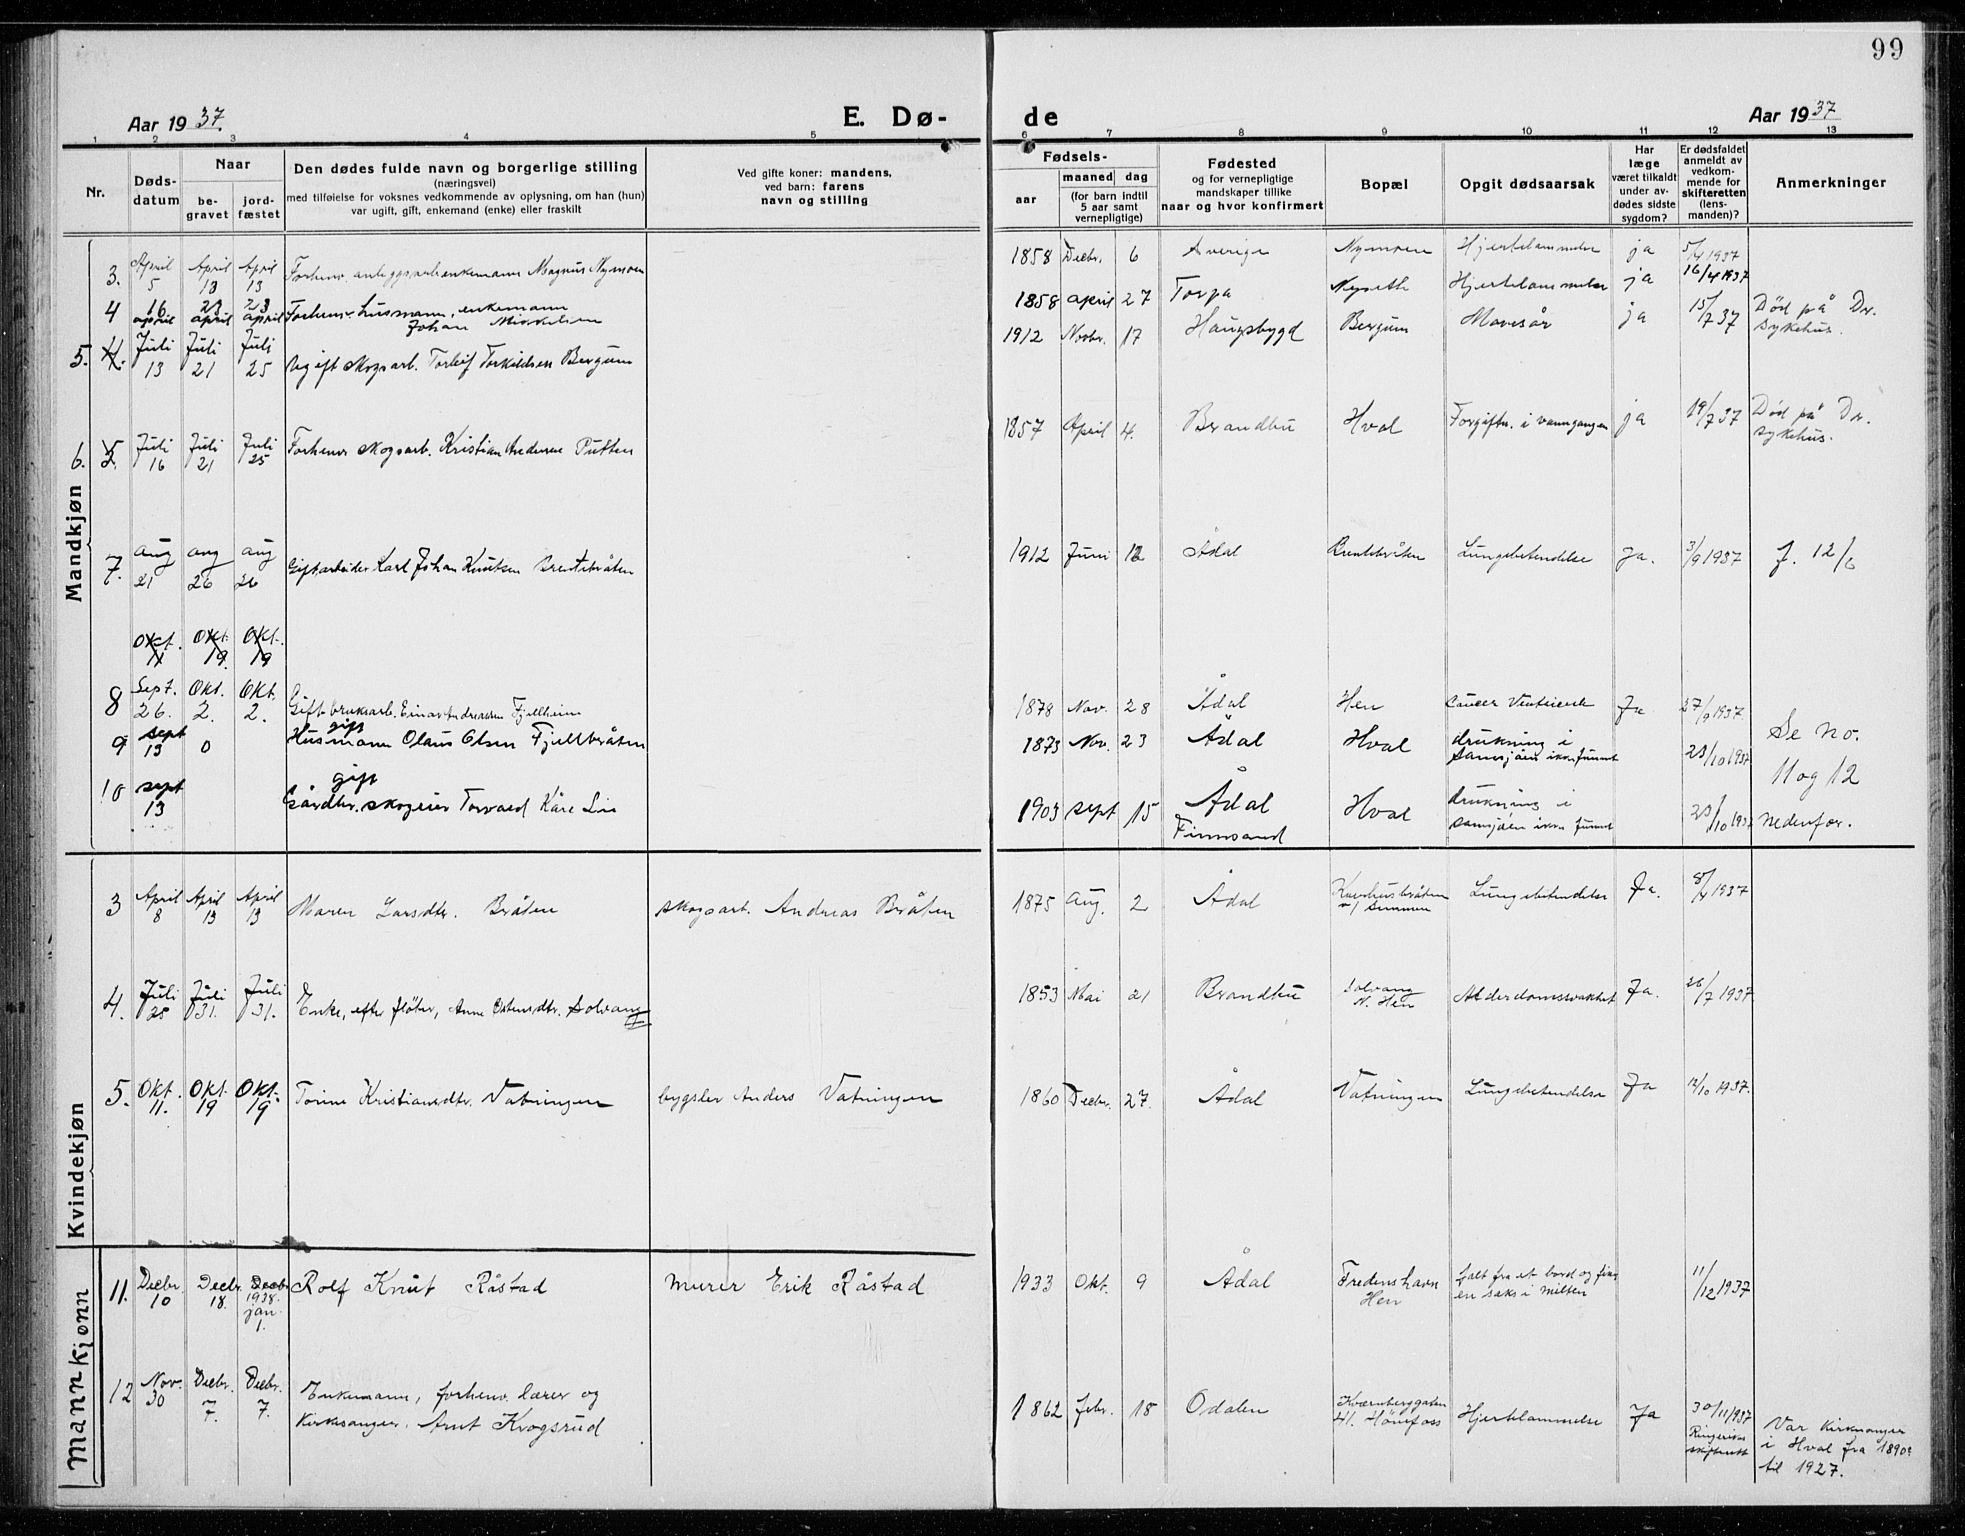 99
Aar 1937. E. Dø- de Aar 1937
1 2 3 4 5 6 7 8 9 10 11 12 13
Nr. Døds-datum Naar be-gravet jord-fæstet Den dødes fulde navn og borgerlige stilling (næringsvei) med tilføielse for voksnes vedkommende av oplysning, om han (hun) var ugift, gift, enkemand (enke) eller fraskilt Ved gifte koner: mandens, ved barn: farens navn og stilling Fødsels- aar maaned dag (for barn indtil 5 aar samt vernepligtige) Fødested og for vernepligtige mandskaper tillike naar og hvor konfirmert Bopæl Opgit dødsaarsak Har læge været tilkaldt under av-dødes sidste sygdom? Er dødsfaldet anmeldt av vedkom-mende for skifteretten (lens-manden)? Anmerkninger
Mandkjøn
3. April 5 April 13 April 13 Forhenv. anleggsarb. enkemann Magnus Nymoen 1858 Decbr. 6 Sverige Nymoen Hjertelammelse ja 5/4 1937
4 16 april 23 april 23 april Forhenv. husmann, enkemann Johan Mikkelsen 1858 april 27 Torpa Nyseth Hjertelammelse ja 16/4 1937
5. 4. Juli 13 Juli 21 Juli 25 Ugift skogsarb. Torleif Torkildsen Bergum 1912 Novbr. 17 Haugsbygd Bergum Mavesår ja 15/7 37 Død på Dr. sykehus.
6. 5. Juli 16 Juli 21 Juli 25 Forhenv. skogsarb. Kristian Andersen Putten 1857 April 4. Brandbu Hval Forgiftn. i vanngangen ja 19/7 37 Død på Dr. sykehus.
7. aug 21 aug 26 aug 26 Gift arbeider Karl Johan Knutsen Brentebråten 1912 Juni 12 Ådal Brentebråten Lungebetendelse Ja. 3/9 1937 f. 12/6
Okt. 11 Okt. 19. Okt. 19
8 Sept. 26. Okt. 2. Okt. 2. Gift bruksarb. Einar Andreassen Fjellheim 1878 Nov. 28 Ådal Hen Cancer Ventriculi Ja 27/9 1937
9 sept 13 0 gift Husmann Olaus Olsen Fjellbråten 1873 Nov. 23 Ådal Hval drukning i Samsjøen ikke funnet 23/10 1937 Se no. 11 og 12 nedenfor.
10 sept 13 gift Gårdbr. skogeier Torvald Kåre Lie 1903 sept 15 Ådal Finnsand Hval drukning i samsjøen ikke funnet 23/10 1937
Kvindekjøn
3 April 8 April 13 April 13 Maren Larsdtr. Bråten skogsarb. Andreas Bråten 1875 Aug. 2 Ådal Lungebetendelse Ja. 8/4 1937
4. Juli 25 Juli 31. Juli 31. Enke, efter fløter, Anne Ostensdtr. Solvang 1853 Mai 21 Brandbu Solvang N. Hen Alderdomssvakhet Ja. 26/7 1937
5. Okt. 11. Okt. 19 Okt. 19 Torine Kristiansdtr. Vatningen bygsler Anders Vatningen 1860 Decbr. 27. Ådal Vatningen Lungebetendelse Ja 12/10 1937.
Mannkjønn
11. Decbr. 10 Decbr. 18. Decbr. 1938. jan. 1. Rolf Knut Råstad murer Erik Råstad 1933 Okt. 9 Ådal Fredenshavn Hen falt fra et bord og fikk en saks i milten 11/12 1937
12 Nov. 30 Decbr. 7. Decbr. 7. Enkemann, forhenv. lærer og kirkesanger. Arnt Krogsrud 1862 febr. 15 Odalen Kværnberggaten 41. Hønefoss Hjertelammelse Ja 30/11 1937 Ringerike skifterett Var kirkesanger i Hval fra 1890? til 1927.